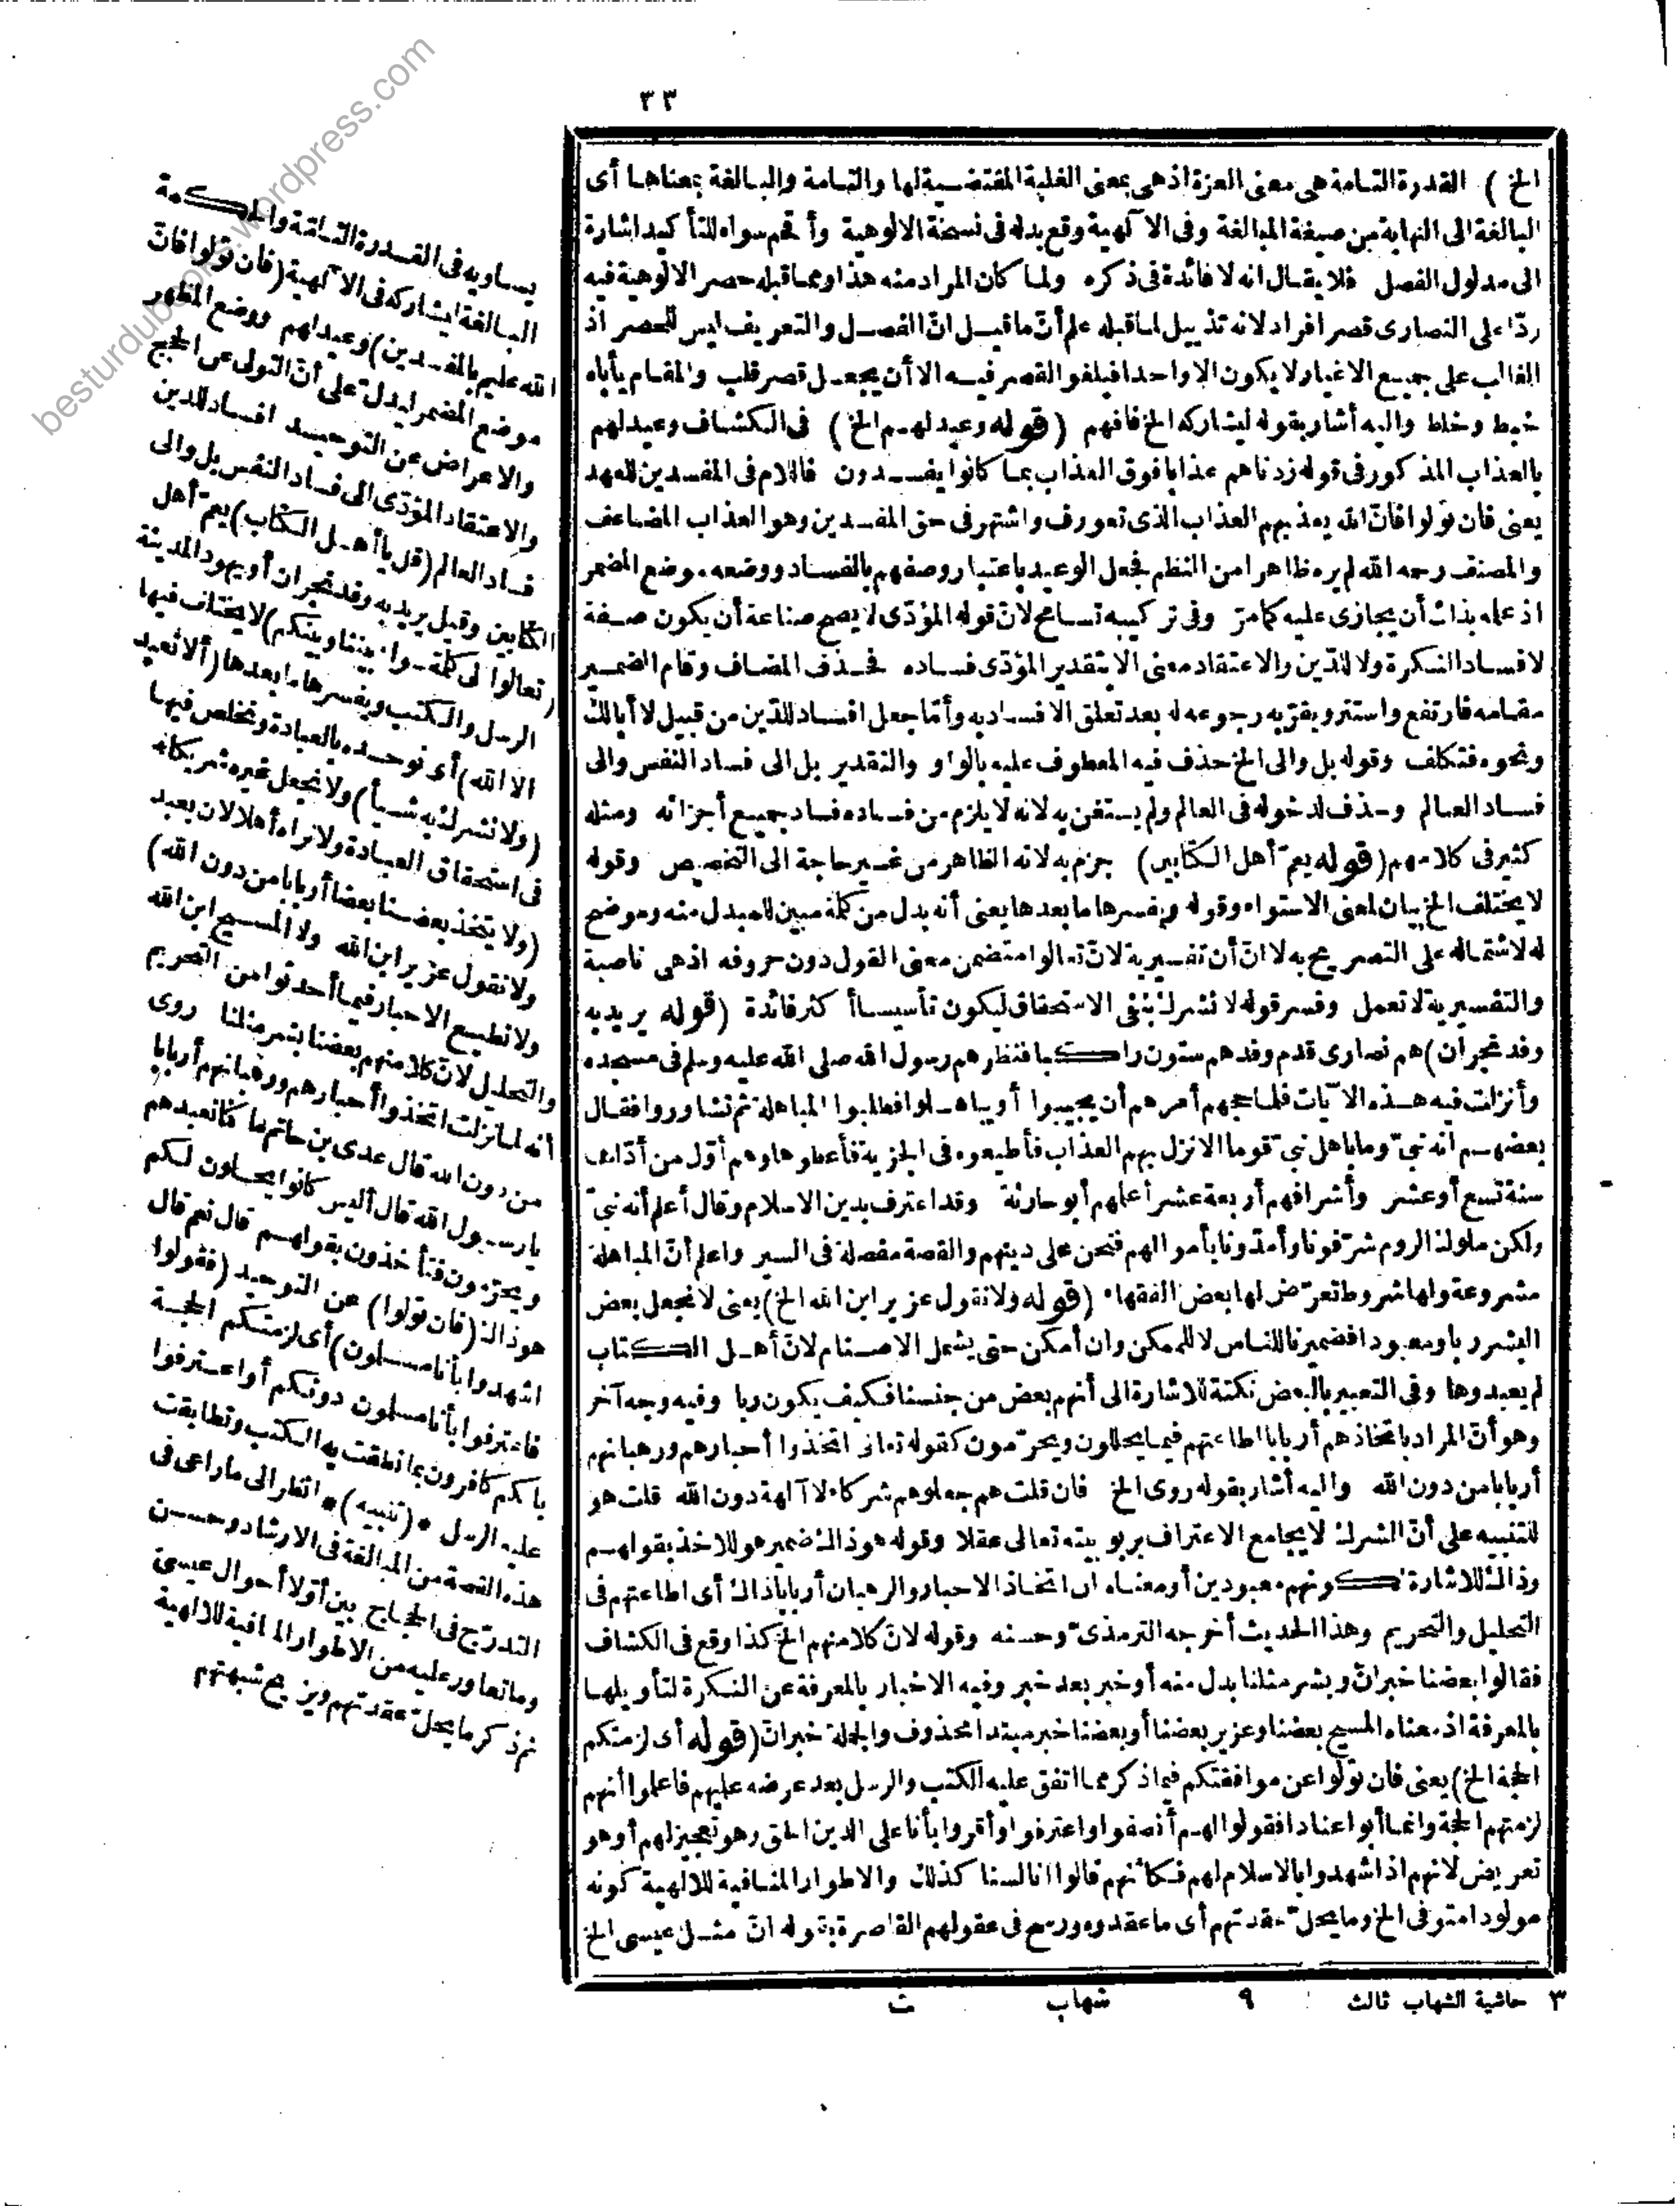 ٣٣
الخ) القدرة التامة هى معنى العزة اذ هى بمعنى الغلبة المقتضية لها والتامة والبالغة بمعناها أى
البالغة الى النهاية من صيغة المبالغة وفى الآلهية وقع بدله فى نسخة الالوهية وأقحم سواه للتأكيد اشارة
الى مدلول الفصل فلا يقال انه لا فائدة فى ذكره ولما كان المراد منه هذا ومما قبله حصر الالوهية فيه
ردّا على النصارى قصر افراد لانه تذييل لما قبله علم أنّ ما قيل انّ الفصل والتعريف ليس للحصر اذ
الغالب على جميع الاغيار لا يكون الا واحدا فيلغو القصر فيه الا أن يجعل قصر قلب والمقام يأباه
خبط وخلط واليه أشار بقوله ليشاركه الخ فافهم (قوله وعيد لهم الخ) فى الكشاف وعيد لهم
بالعذاب المذكور فى قوله زدناهم عذابا فوق العذاب بما كانوا يفسدون فاللام فى المفسدين للعهد
يعنى فان تولوا فانّ الله يعذبهم العذاب الذى تعورف واشتهر فى حق المفسدين وهو العذاب المضاعف
والمصنف رحمه الله لم يره ظاهرا من النظم فجعل الوعيد باعتبار وصفهم بالفساد ووضعه موضع المضمر
اذ علمه بذات أن يجازى عليه كما مرّ وفى تركيبه تسامح لانّ قوله المؤدّى لا يصح صناعة أن يكون صفة
لافساد النكرة ولا للدّين والاعتقاد معنى الا بتقدير المؤدّى فساده فحذف المضاف وقام الضمير
مقامه فارتفع واستتر ويقرّ به رجوعه له بعد تعلق الافساد به وأمّا جعل افساد للدّين من قبيل لا أبا لك
ونحوه فتكلف وقوله بل والى الخ حذف فيه المعطوف عليه بالواو والتقدير بل الى فساد النفس والى
فساد العالم وحذف لدخوله فى العالم ولم يستغن به لانه لا يلزم من فساده فساد جميع أجزائه ومثله
كثير فى كلامهم (قوله يعمّ أهل الكتابين) جزم به لانه الظاهر من غير حاجة الى التخصيص وقوله
لا يختلف الخ بيان لمعنى الاستواء وقوله ويفسرها ما بعدها يعنى أنه بدل من كلمة مبين للمبدل منه وموضح
له لاشتماله على التصريح به لا انّ أن تفسيرية لانّ تعالوا متضمن معنى القول دون حروفه اذ هى ناصبة
والتفسيرية لا تعمل وفسر قوله لا نشرك بنفى الاستحقاق ليكون تأسيسا أكثر فائدة (قوله يريد به
وفد نجران) هم نصارى قدم وفدهم ستون راكبا فنظرهم رسول الله صلى الله عليه وسلم فى مسجده
وأنزلت فيه هذه الآيات فلما حجهم أمرهم أن يجيبوا أو يباهلوا فطلبوا المباهلة ثم تشاوروا فقال
بعضهم انه نبىّ وما باهل نبىّ قوما الا نزل بهم العذاب فأطيعوه فى الجزية فأعطوها وهم أوّل من أدّاها
سنة تسع أو عشر وأشرافهم أربعة عشر أعلمهم أبو حارثة وقد اعترف بدين الاسلام وقال أعلم أنه نبىّ
ولكن ملوك الروم شرّفونا وأمدّونا بأموالهم فنحن على دينهم والقصة مفصلة فى السير واعلم أنّ المباهلة
مشروعة ولها شروط تعرّض لها بعض الفقهاء (قوله ولا نقول عزير ابن الله الخ) يعنى لا نجعل بعض
البشر ربا ومعبودا فضمير نا للناس لا للممكن وان أمكن حتى يشمل الاصنام لانّ أهل الكتاب
لم يعبدوها وفى التعبير بالبعض نكتة للاشارة الى أنهم بعض من جنسنا فكيف يكون ربا وفيه وجه آخر
وهو أنّ المراد باتخاذهم أربابا اطاعتهم فيما يحللون ويحرّمون كقوله تعالى اتخذوا أحبارهم ورهبانهم
أربابا من دون الله واليه أشار بقوله روى الخ فان قلت هم جعلوهم شركاء لا آلهة دون الله قلت هو
للتنبيه على أنّ الشرك لا يجامع الاعتراف بربوبيته تعالى عقلا وقوله هو ذاك ضمير هو للاخذ بقولهم
وذاك للاشارة لكونهم معبودين أو معناه ان اتخاذ الاحبار والرهبان أربابا ذاك أى اطاعتهم فى
التحليل والتحريم وهذا الحديث أخرجه الترمذىّ وحسنه وقوله لانّ كلا منهم الخ كذا وقع فى الكشاف
فقالوا بعضنا خبر انّ وبشر مثلنا بدل منه أو خبر بعد خبر وفيه الاخبار بالمعرفة عن النكرة لتأويلها
بالمعرفة اذ معناه المسيح بعضنا وعزير بعضنا أو بعضنا خبر مبتدا محذوف والجملة خبر انّ (قوله أى لزمتكم
الحجة الخ) يعنى فان تولوا عن موافقتكم فيما ذكر مما اتفق عليه الكتب والرسل بعد عرضه عليهم فاعلموا أنهم
لزمتهم الحجة وانما أبوا عنادا فقولوا لهم أنصفوا واعترفوا وأقروا بأنا على الدين الحق وهو تعجيز لهم أو هو
تعريض لانهم اذا شهدوا بالاسلام لهم فكأنهم قالوا انا لسنا كذلك والاطوار المنافية للالهية كونه
مولودا متوفى الخ وما يحلّ عقدتهم أى ما عقدوه ورسخ فى عقولهم القاصرة بقوله انّ مثل عيسى الخ
يساويه فى القدرة التامّة والحكمة
البالغة ليشاركه فى الآلهية (فان تولوا فانّ
الله عليم بالمفسدين) وعيد لهم ووضع المظهر
موضع المضمر ليدل على أنّ التولى عن الحجج
والاعراض عن التوحيد افساد للدين
والاعتقاد المؤدّى الى فساد النفس بل والى
فساد العالم (قل يا أهل الكتاب) يعمّ أهل
الكتابين وقيل يريد به وفد نجران أو يهود المدينة
(تعالوا الى كلمة سواء بيننا وبينكم) لا يختلف فيها
الرسل والكتب ويفسرها ما بعدها (ألا نعبد
الا الله) أى نوحده بالعبادة ونخلص فيها
(ولا نشرك به شيأ) ولا نجعل غيره شريكا له
فى استحقاق العبادة ولا نراه أهلا لان يعبد
(ولا يتخذ بعضنا بعضا أربابا من دون الله)
ولا نقول عزير ابن الله ولا المسيح ابن الله
ولا نطيع الاحبار فيما أحدثوا من التحريم
والتحليل لانّ كلا منهم بعضنا بشر مثلنا روى
أنه لما نزلت اتخذوا أحبارهم ورهبانهم أربابا
من دون الله قال عدى بن حاتم ما كنا نعبدهم
يا رسول الله قال أليس كانوا يحلون لكم
ويحرّمون فتأخذون بقولهم قال نعم قال
هو ذاك (فان تولوا) عن التوحيد (فقولوا
اشهدوا بأنا مسلمون) أى لزمتكم الحجة
فاعترفوا بأنا مسلمون دونكم أو اعترفوا
بأنكم كافرون بما نطقت به الكتب وتطابقت
عليه الرسل * (تنبيه) * انظر الى ما راعى فى
هذه القصة من المبالغة فى الارشاد وحسن
التدرّج فى الحجاج بين أوّلا أحوال عيسى
وما تعاور عليه من الاطوار المنافية للالهية
ثم ذكر ما يحلّ عقدتهم ويزيح شبهتهم
٣ حاشية الشهاب ثالث ٩ شهاب ث
besturdubooks.wordpress.com